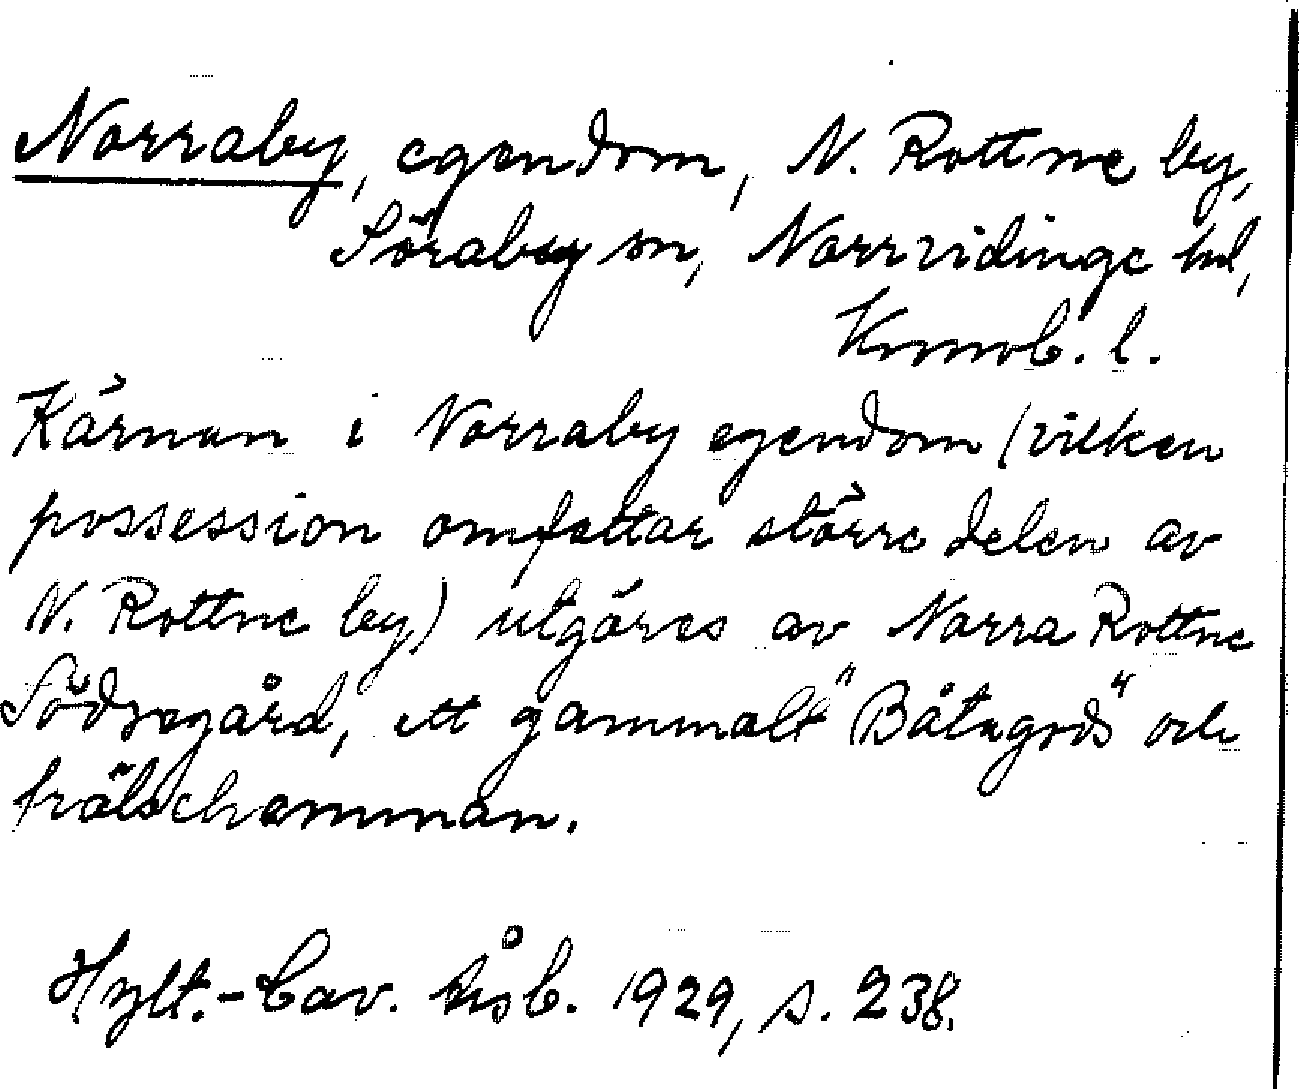 Norraby, egendom, N. Rottne by,
Söraby sn, Norrvidinge hd,
Kronob. l.
Kärnan i Norraby egendom (vilken
possession omfattar större delen av
N. Rottne by) utgöres av Norra Rottne
Södregård, ett gammalt "Båtsgods" och
frälsehemman.
Hylt.-Cav. Åsb. 1929, s. 238.